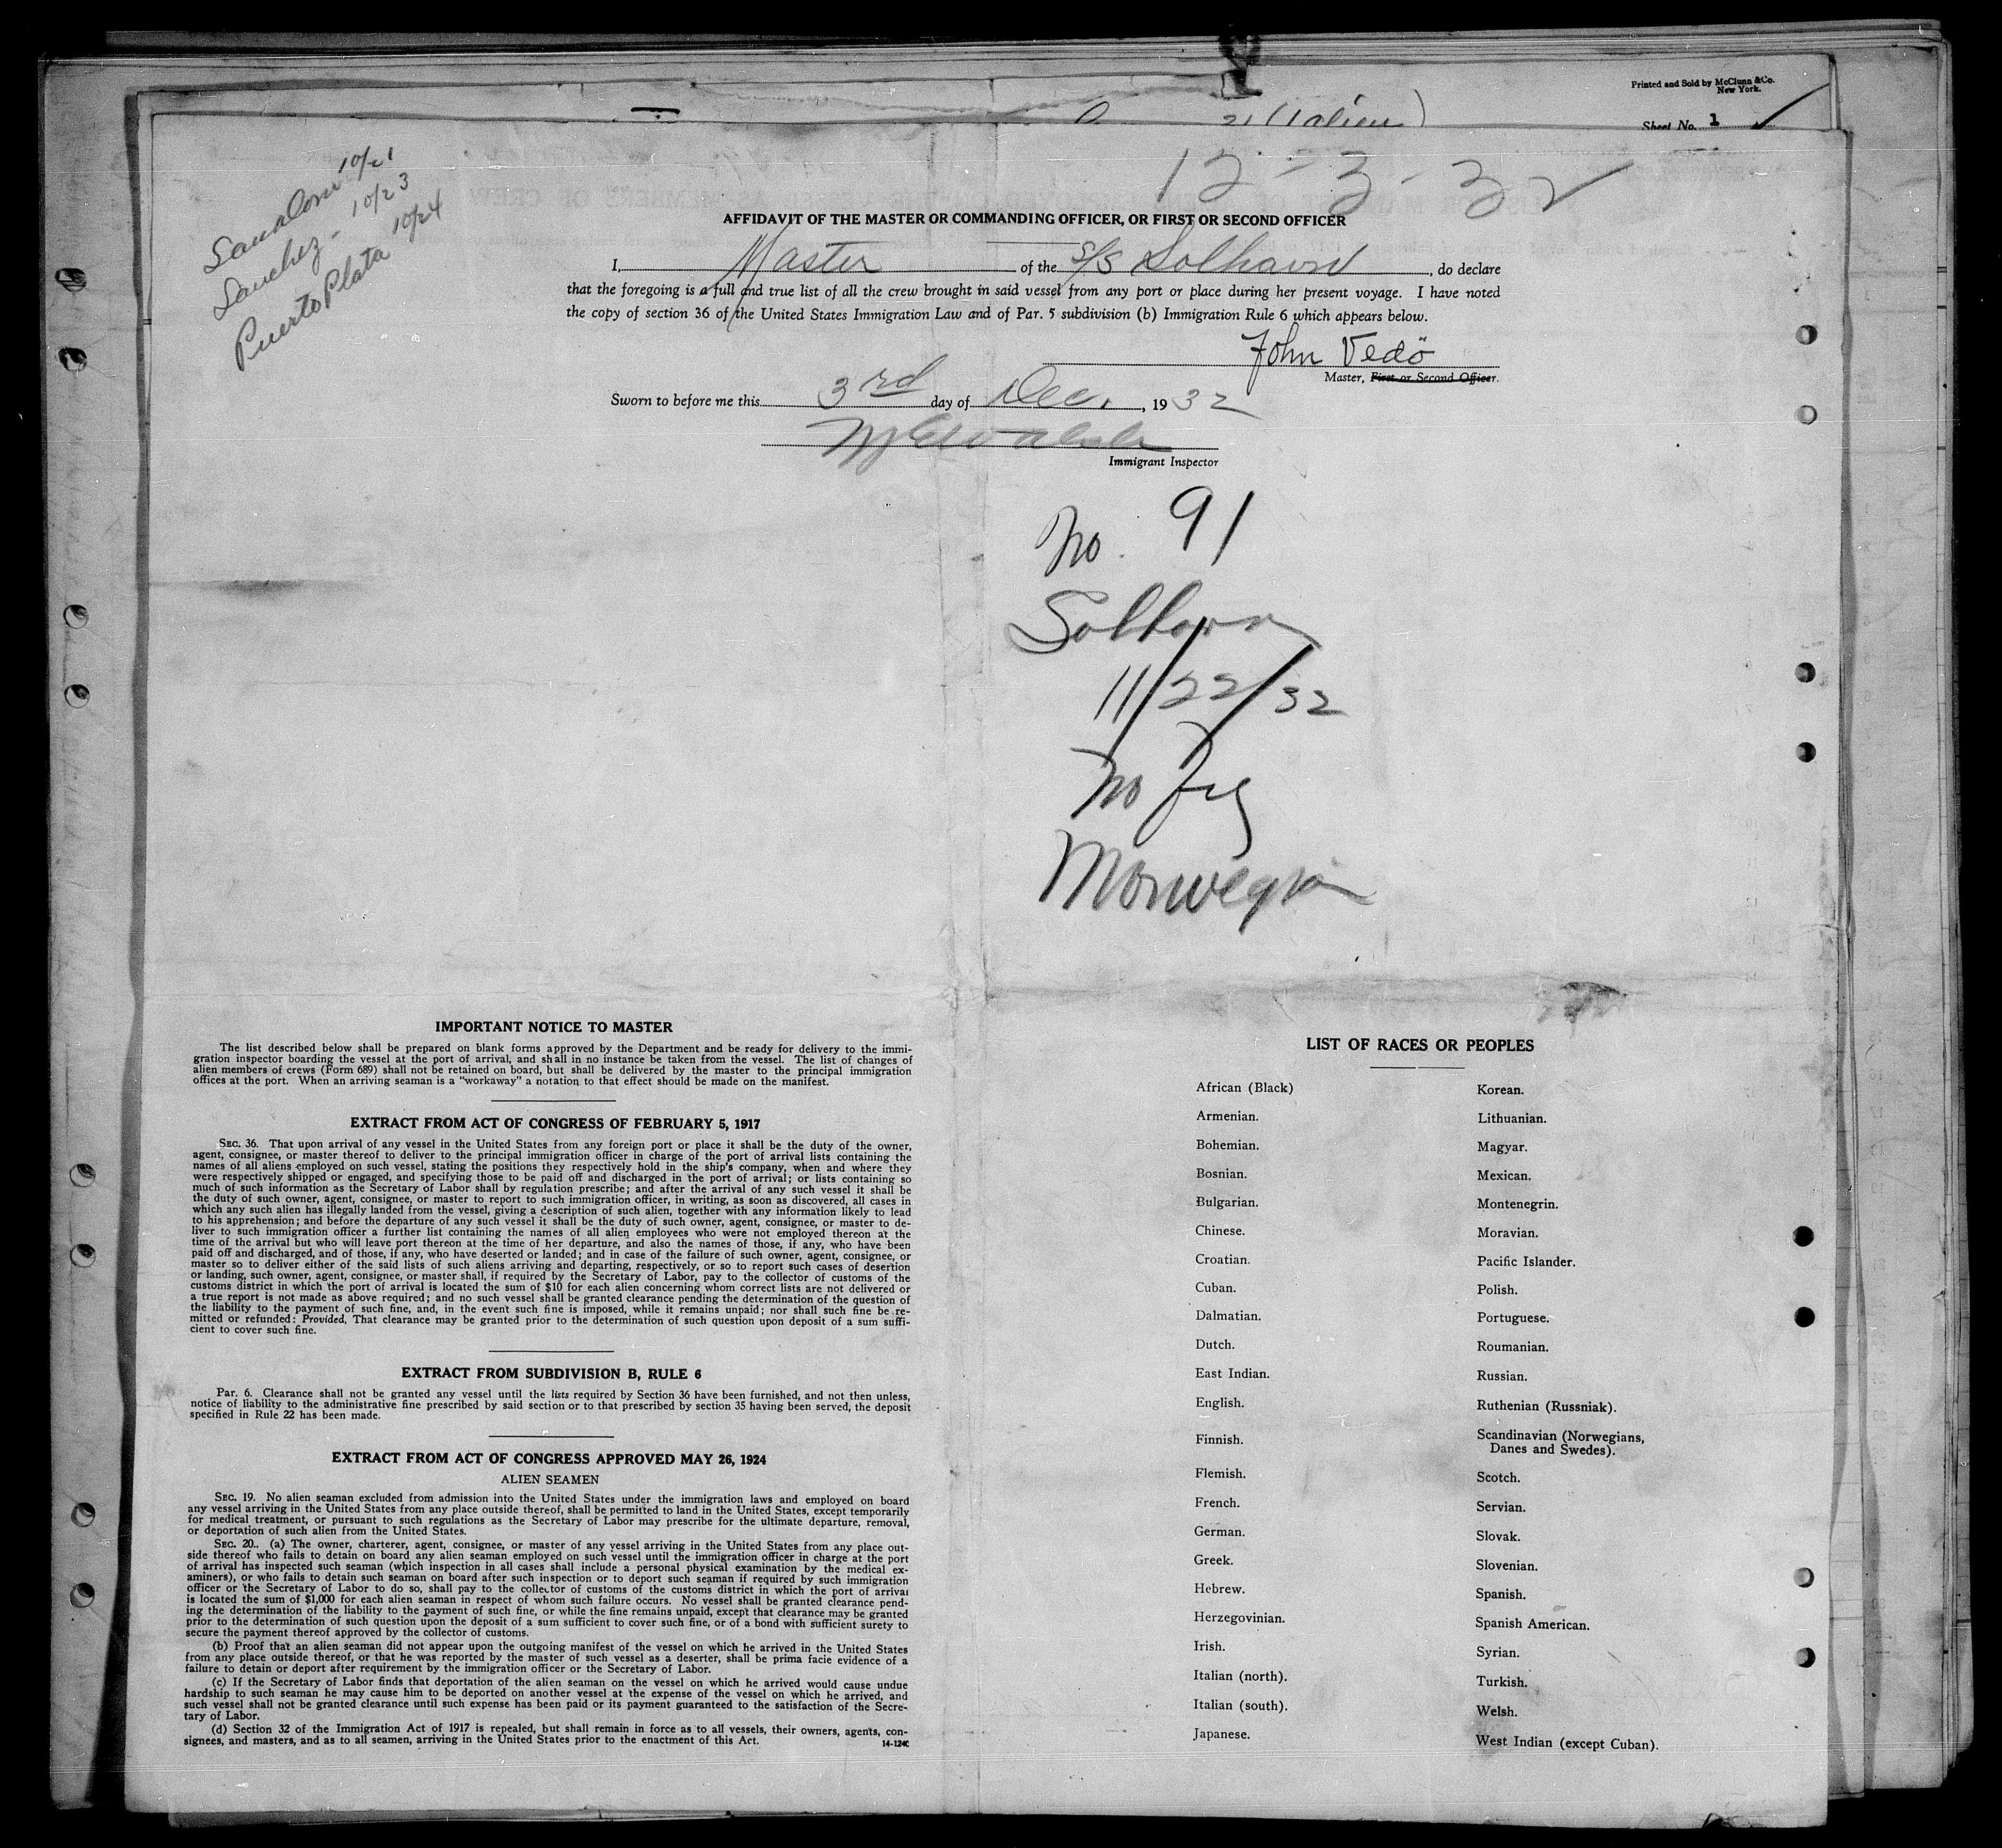 Printed and Sold by McClunn & Co.
New York.
(1 alien)
Sheet No. 1
12-3-32
10/21
Sanchez - 10/23
Puerto Plata 10/24
AFFIDAVIT OF THE MASTER OR COMMANDING OFFICER, OR FIRST OR SECOND OFFICER
I, Master of the S/S Solhavn, do declare
that the foregoing is a full and true list of all the crew brought in said vessel from any port or place during her present voyage. I have noted
the copy of section 36 of the United States Immigration Law and of Par. 5 subdivision (b) Immigration Rule 6 which appears below.
John Vedö
Master, First or Second Officer.
Sworn to before me this 3rd day of Dec., 1932
Immigrant Inspector
No. 91
Solhavn
11/22/32
No
Norwegian
IMPORTANT NOTICE TO MASTER
The list described below shall be prepared on blank forms approved by the Department and be ready for delivery to the immi-
gration inspector boarding the vessel at the port of arrival, and shall in no instance be taken from the vessel. The list of changes of
alien members of crews (Form 689) shall not be retained on board, but shall be delivered by the master to the principal immigration
offices at the port. When an arriving seaman is a "workaway" a notation to that effect should be made on the manifest.
EXTRACT FROM ACT OF CONGRESS OF FEBRUARY 5, 1917
SEC. 36. That upon arrival of any vessel in the United States from any foreign port or place it shall be the duty of the owner,
agent, consignee, or master thereof to deliver to the principal immigration officer in charge of the port of arrival lists containing the
names of all aliens employed on such vessel, stating the positions they respectively hold in the ship's company, when and where they
were respectively shipped or engaged, and specifying those to be paid off and discharged in the port of arrival; or lists containing so
much of such information as the Secretary of Labor shall by regulation prescribe; and after the arrival of any such vessel it shall be
the duty of such owner, agent, consignee, or master to report to such immigration officer, in writing, as soon as discovered, all cases in
which any such alien has illegally landed from the vessel, giving a description of such alien, together with any information likely to lead
to his apprehension; and before the departure of any such vessel it shall be the duty of such owner, agent, consignee, or master to de-
liver to such immigration officer a further list containing the names of all alien employees who were not employed thereon at the
time of the arrival but who will leave port thereon at the time of her departure, and also the names of those, if any, who have been
paid off and discharged, and of those, if any, who have deserted or landed; and in case of the failure of such owner, agent, consignee, or
master so to deliver either of the said lists of such aliens arriving and departing, respectively, or so to report such cases of desertion
or landing, such owner, agent, consignee, or master shall, if required by the Secretary of Labor, pay to the collector of customs of the
customs district in which the port of arrival is located the sum of $10 for each alien concerning whom correct lists are not delivered or
a true report is not made as above required; and no such vessel shall be granted clearance pending the determination of the question of
the liability to the payment of such fine, and, in the event such fine is imposed, while it remains unpaid; nor shall such fine be re-
mitted or refunded: Provided, That clearance may be granted prior to the determination of such question upon deposit of a sum suffi-
cient to cover such fine.
EXTRACT FROM SUBDIVISION B, RULE 6
Par. 6. Clearance shall not be granted any vessel until the lists required by Section 36 have been furnished, and not then unless,
notice of liability to the administrative fine prescribed by said section or to that prescribed by section 35 having been served, the deposit
specified in Rule 22 has been made.
EXTRACT FROM ACT OF CONGRESS APPROVED MAY 26, 1924
ALIEN SEAMEN
SEC. 19. No alien seaman excluded from admission into the United States under the immigration laws and employed on board
any vessel arriving in the United States from any place outside thereof, shall be permitted to land in the United States, except temporarily
for medical treatment, or pursuant to such regulations as the Secretary of Labor may prescribe for the ultimate departure, removal,
or deportation of such alien from the United States.
SEC. 20.. (a) The owner, charterer, agent, consignee, or master of any vessel arriving in the United States from any place out-
side thereof who fails to detain on board any alien seaman employed on such vessel until the immigration officer in charge at the port
of arrival has inspected such seaman (which inspection in all cases shall include a personal physical examination by the medical ex-
aminers), or who fails to detain such seaman on board after such inspection or to deport such seaman if required by such immigration
officer or the Secretary of Labor to do so, shall pay to the collector of customs of the customs district in which the port of arrival
is located the sum of $1,000 for each alien seaman in respect of whom such failure occurs. No vessel shall be granted clearance pend-
ing the determination of the liability to the payment of such fine, or while the fine remains unpaid, except that clearance may be granted
prior to the determination of such question upon the deposit of a sum sufficient to cover such fine, or of a bond with sufficient surety to
secure the payment thereof approved by the collector of customs.
(b) Proof that an alien seaman did not appear upon the outgoing manifest of the vessel on which he arrived in the United States
from any place outside thereof, or that he was reported by the master of such vessel as a deserter, shall be prima facie evidence of a
failure to detain or deport after requirement by the immigration officer or the Secretary of Labor.
(c) If the Secretary of Labor finds that deportation of the alien seaman on the vessel on which he arrived would cause undue
hardship to such seaman he may cause him to be deported on another vessel at the expense of the vessel on which he arrived, and
such vessel shall not be granted clearance until such expense has been paid or its payment guaranteed to the satisfaction of the Secre-
tary of Labor.
(d) Section 32 of the Immigration Act of 1917 is repealed, but shall remain in force as to all vessels, their owners, agents, con-
signees, and masters, and as to all seamen, arriving in the United States prior to the enactment of this Act.
14-124C
LIST OF RACES OR PEOPLES
African (Black)
Armenian.
Bohemian.
Bosnian.
Bulgarian.
Chinese.
Croatian.
Cuban.
Dalmatian.
Dutch.
East Indian.
English.
Finnish.
Flemish.
French.
German.
Greek.
Hebrew.
Herzegovinian.
Irish.
Italian (north).
Italian (south).
Japanese.
Korean.
Lithuanian.
Magyar.
Mexican.
Montenegrin.
Moravian.
Pacific Islander.
Polish.
Portuguese.
Roumanian.
Russian.
Ruthenian (Russniak).
Scandinavian (Norwegians,
Danes and Swedes).
Scotch.
Servian.
Slovak.
Slovenian.
Spanish.
Spanish American.
Syrian.
Turkish.
Welsh.
West Indian (except Cuban).